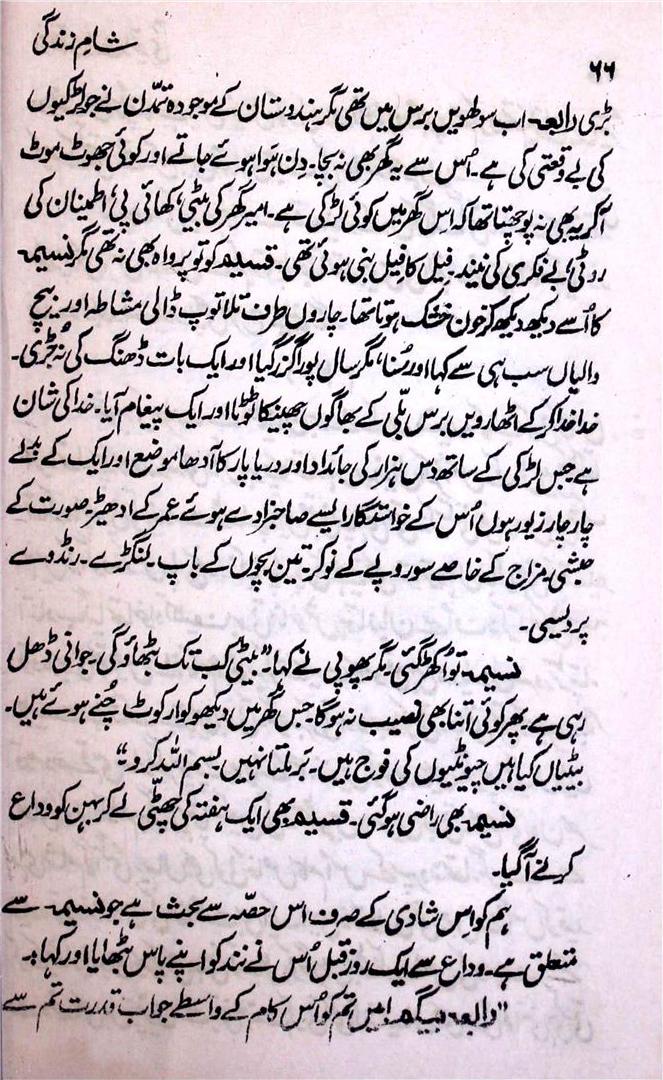 شامِ زندگی
۶۶
بڑی رابعہ اب سولھویں برس میں تھی مگر ہندوستان کے موجودہ تمدّن نے جو لڑکیوں
کی بے وقعتی کی ہے۔ اُس سے یہ گھر بھی نہ بچا۔ دِن ہَوا ہوئے جاتے اور کوئی جھوٹ موٹ
آکر یہ بھی نہ پوچھتا تھا کہ اِس گھر میں کوئی لڑکی ہے۔ امیر گھر کی بیٹی، کھائی پی، اطمینان کی
روٹی بے فکری کی نیند۔ فیل کا فیل بنی ہوئی تھی۔ قسیم کو تو پرواہ بھی نہ تھی مگر نسیمہ
کا اُسے دیکھ دیکھ کر خون خشک ہوتا تھا۔ چاروں طرف تلا توپ ڈالی مشاطہ اور بیچ
والیاں سب ہی سے کہا اور سُنا، مگر سال پورا گزر گیا اور ایک بات ڈھنگ کی نہ جُڑی۔
خدا خدا کر کے اٹھارویں برس بلّی کے بھاگوں چھینکا ٹوٹا اور ایک پیغام آیا۔ خدا کی شان
ہے جس لڑکی کے ساتھ دس ہزار کی جائداد اور دریا پار کا آدھا موضع اور ایک کے بدلے
چار چار زیور ہوں اُس کے خواستگار ایسے صاحبزادے ہوئے عمر کے ادھیڑ۔ صورت کے
حبشی۔ مزاج کے خاصے سو روپے کے نوکر تین بچوں کے باپ۔ لنگڑے۔ رنڈوے
پردیسی۔
نسیمہ تو اُکھڑ گئی۔ مگر پھوپی نے کہا۔ "بیٹی کب تک بٹھاؤ گی۔ جوانی ڈھل
رہی ہے۔ پھر کوئی اتنا بھی نصیب نہ ہوگا۔ جس گھر میں دیکھو کوار کوٹ چُنے ہوئے ہیں۔
بیٹیاں کیا ہیں چیونٹیوں کی فوج ہیں۔ بَر ملتا نہیں بسم اللہ کرو"
نسیمہ بھی راضی ہوگئی۔ قسیم بھی ایک ہفتہ کی چھٹّی لے کر بہن کو وداع
کرنے آگیا۔
ہم کو اِس شادی کے صرف اس حصّہ سے بحث ہے جو نسیمہ سے
متعلق ہے۔ وداع سے ایک روز قبل اُس نے نند کو اپنے پاس بٹھایا اور کہا:۔
"رابعہ بیگم! میں تم کو اُس کام کے واسطے جو اب قدرت تم سے